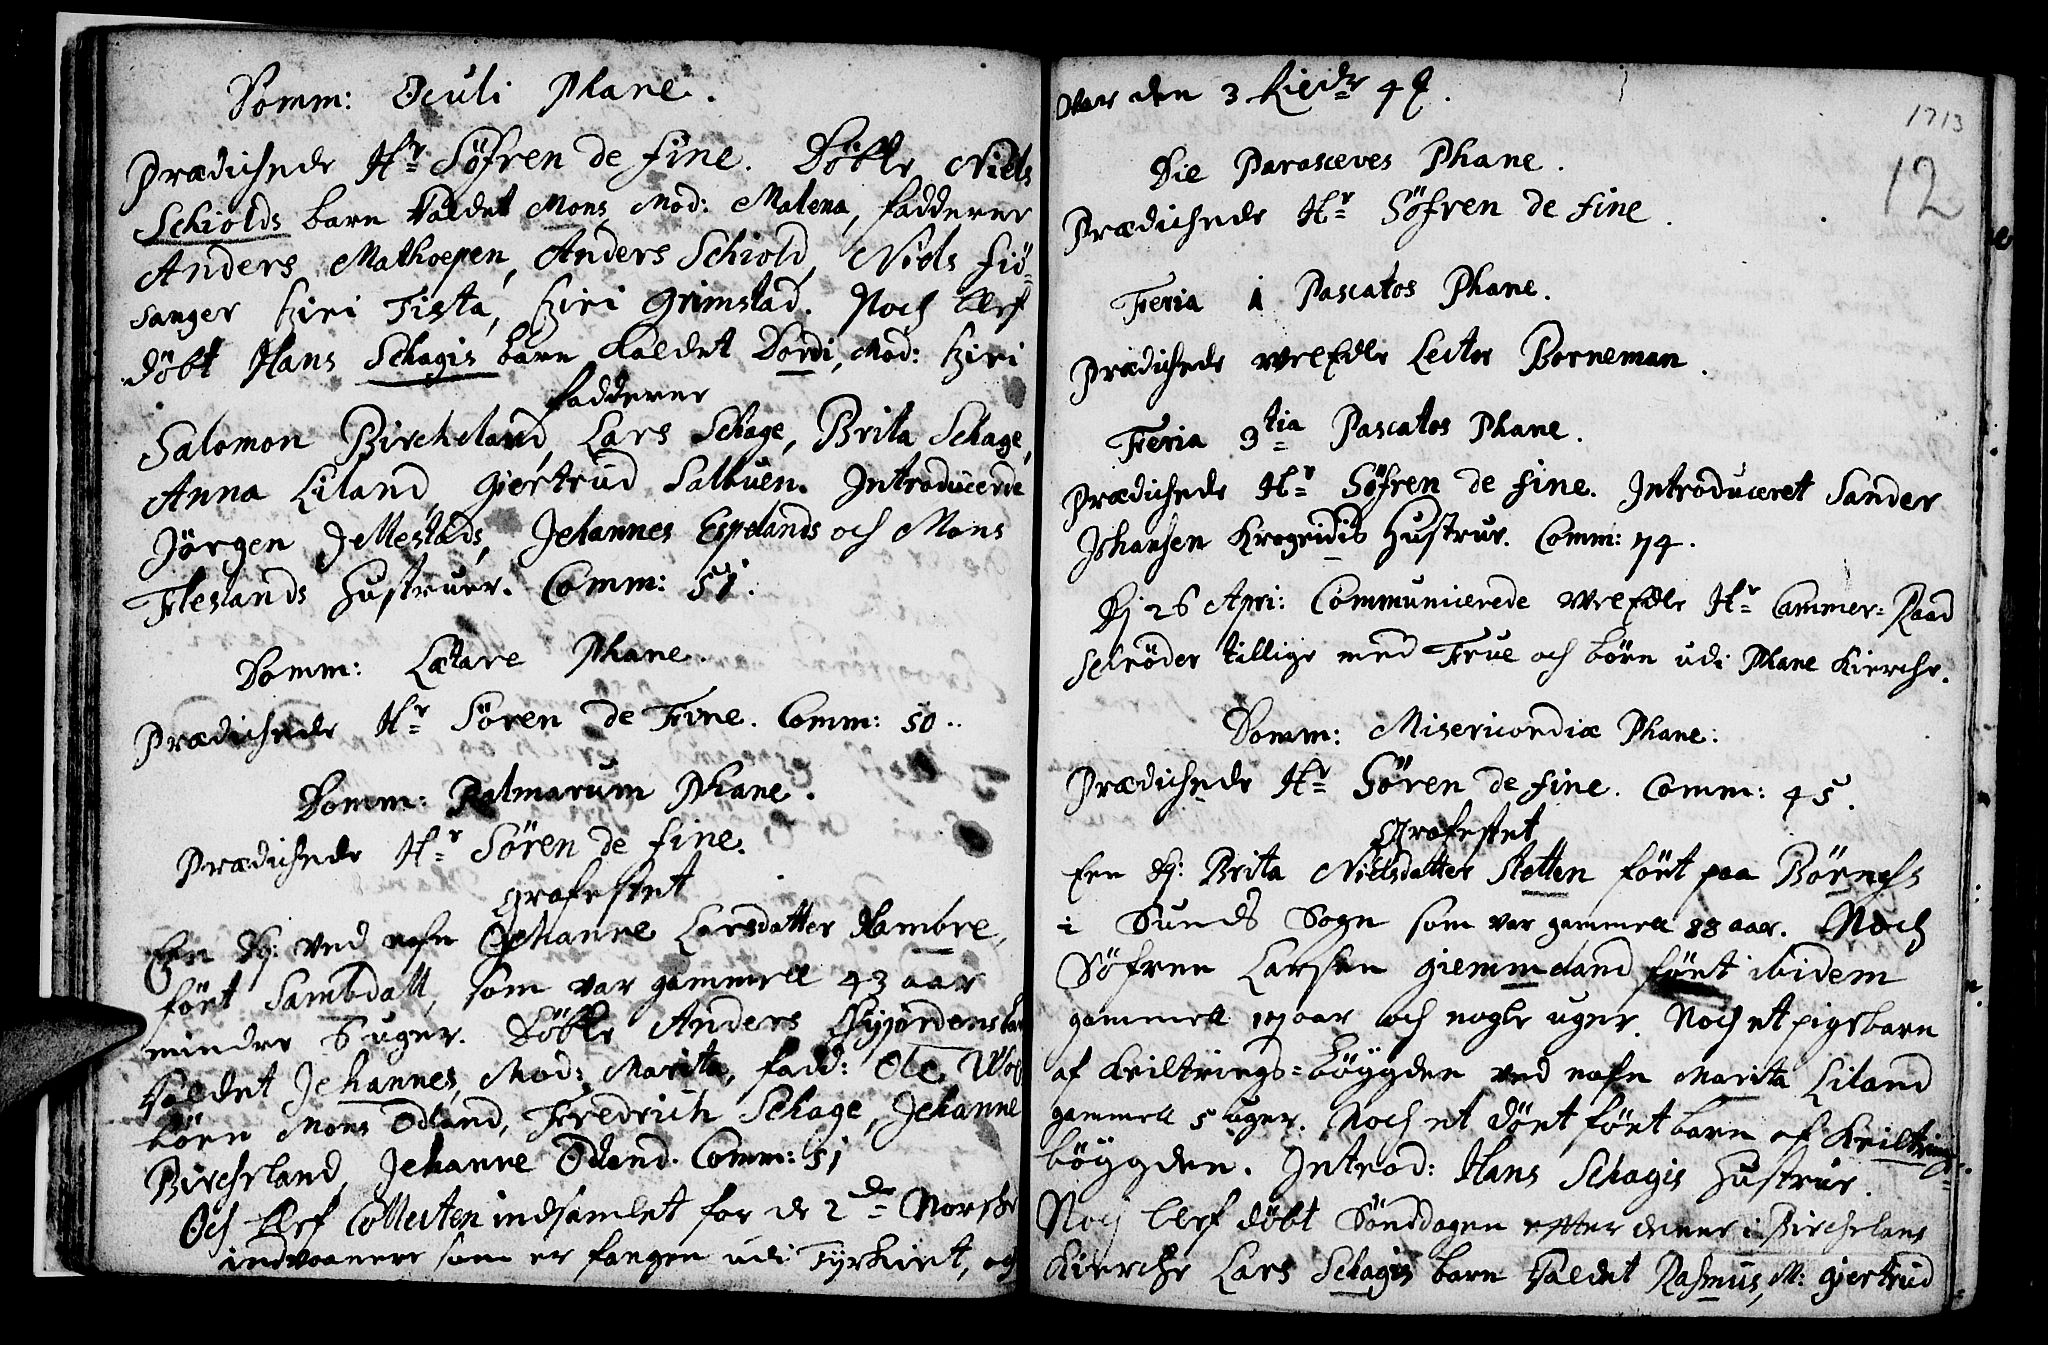 Domm: Oculi Phane.
Prædichede Hr Söfren de fine. Döbte Niels
Schiolds barn kaldet Mons, Mod: Malena, fadderne
Anders Mathoepen, Anders Schiold, Niels fiö-
sanger Kiri Tista, Kiri Grimstad. Noch blef
döbt Hans Schagis barn kaldet Dordi, Mod: Kiri
fadderne
Salomon Bircheland, Lars Schage, Brita Schage,
Anna Liland, Giertrud Salbuen. Introducerede
Jörgen Jellestads, Jehannes Espelands och Mons
Fleslands Hustruer. Comm: 51.
Domm: Lætare Phane.
Prædichede Hr Sören de Fine. Comm: 50..
Domm: Palmarum Phane.
Prædichede Hr Sören de fine.
Grafestet
Een Qv: ved nafn Jehanne Larsdatter Hambre,
fört Sambdall, som var gammell 43 aar
mindre 5 uger. Döbte Anders
kaldet Jehannes, Mod: Marita, fadd: Ole
börn Mons Odland, Fredrich Schage, Jehanne
Bircheland, Jehanne Odland. Comm: 51
Och blef Collecten indsamlet for de 2de Norske
indvaanere som er fangen udi Tyrkiet, og
var den 3 4
1713
12
Die Parasceves Phane.
Prædichede Hr Söfren de fine.
Feria 1 Pascatos Phane.
Prædichede velEdle Lector Borneman.
Feria 3tia Pascatos Phane.
Prædichede Hr Söfren de fine. Introduceret Sander
Johansen Krogeidis Hustrue. Comm: 74.
Dj 26 Apri: Communicerede velEdle Hr Cammer-Raad
Selröder tillige med Frue och börn udi Phane Kierche.
Domm: Misericordiæ Phane:
Prædichede Hr Sören de fine. Comm: 45.
Grafestet
Een Qv: Brita Nielsdatter Stetten fört paa Börnes
i Sunds Sogn som var gammell 88 aar. Noch
Söfren Larsen Giemmeland fört ibidem
gammell 17 aar och nogle uger. Noch et pigebarn
af Kviltrings-böygden ved nafn Marita Liland
gammell 5 uger. Noch et dört fört barn af Kviltrings-
böygden. Introd: Hans Schagis Hustrue.
Noch blef döbt Söndagen efter denne i Birchelans
Kierche Lars Schagis barn kaldet Rasmus, M: Giertrud